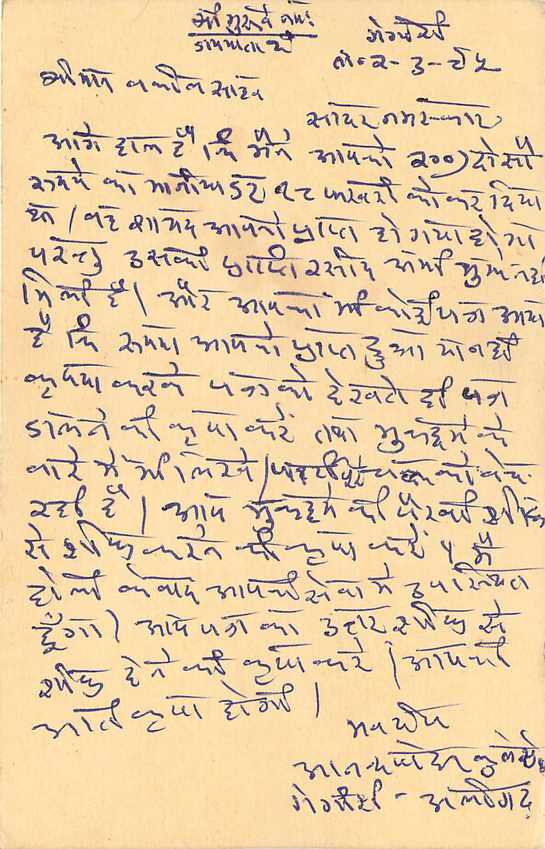 श्री गुरुवे नमः
ता० 2-3-85
श्रीमान वकील साहब
सादर नमस्कार
आगे हाल है कि मैंने आपको 200) दो सौ
रुपये का मनीआर्डर फरवरी को कर दिया
था। वह शायद आपको प्राप्त हो गया होगा
परन्तु उसकी प्राप्ति रसीद अभी मुझे नहीं
मिली है। और आपका भी कोई पत्र आया
है कि रुपया आपको प्राप्त हुआ या नहीं
कृपया करके पत्र को देखते ही पत्र
डालने की कृपा करें तथा मुकद्दमे के
बारे में भी लिखें।
रही है। आप मुकद्दमे की पैरवी शीघ्र
से शीघ्र करने की कृपा करें। मैं
होली के बाद आपकी सेवा में उपस्थित
हूँगा। आप पत्र का उत्तर शीघ्र से
शीघ्र देने की कृपा करें। आपकी
अति कृपा होगी।
भवदीय
अलीगढ़